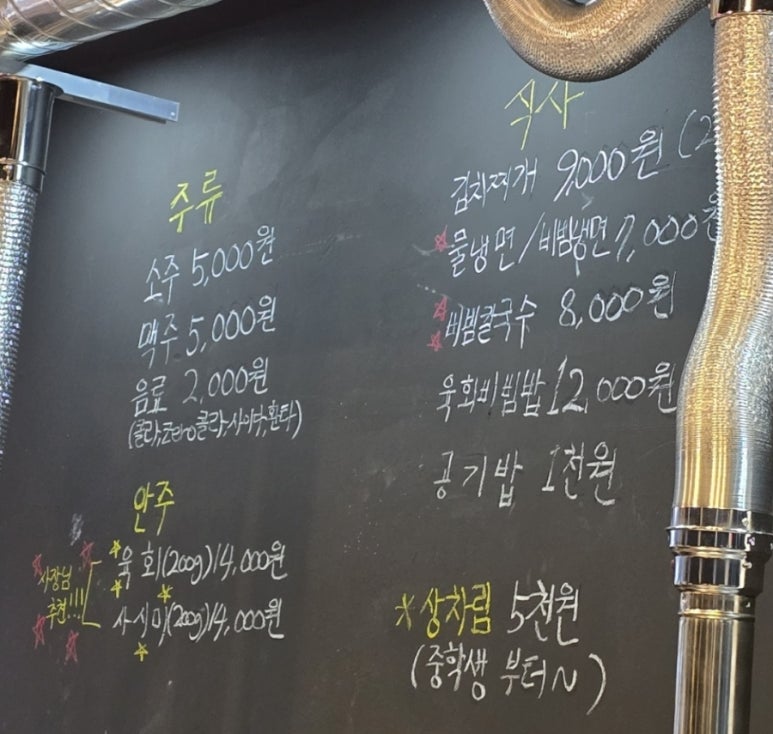 주류
소주 5,000원
맥주 5,000원
음료 2,000원
(콜라,Zero콜라,사이다,환타)
안주
사장님
추천!!!
육회(200g)14,000원
사시미(200g)14,000원
식사
김치찌개 9,000원 (2
물냉면/비빔냉면 7,000원
비빔칼국수 8,000원
육회비빔밥 12,000원
공기밥 1천원
상차림 5천원
(중학생 부터~)